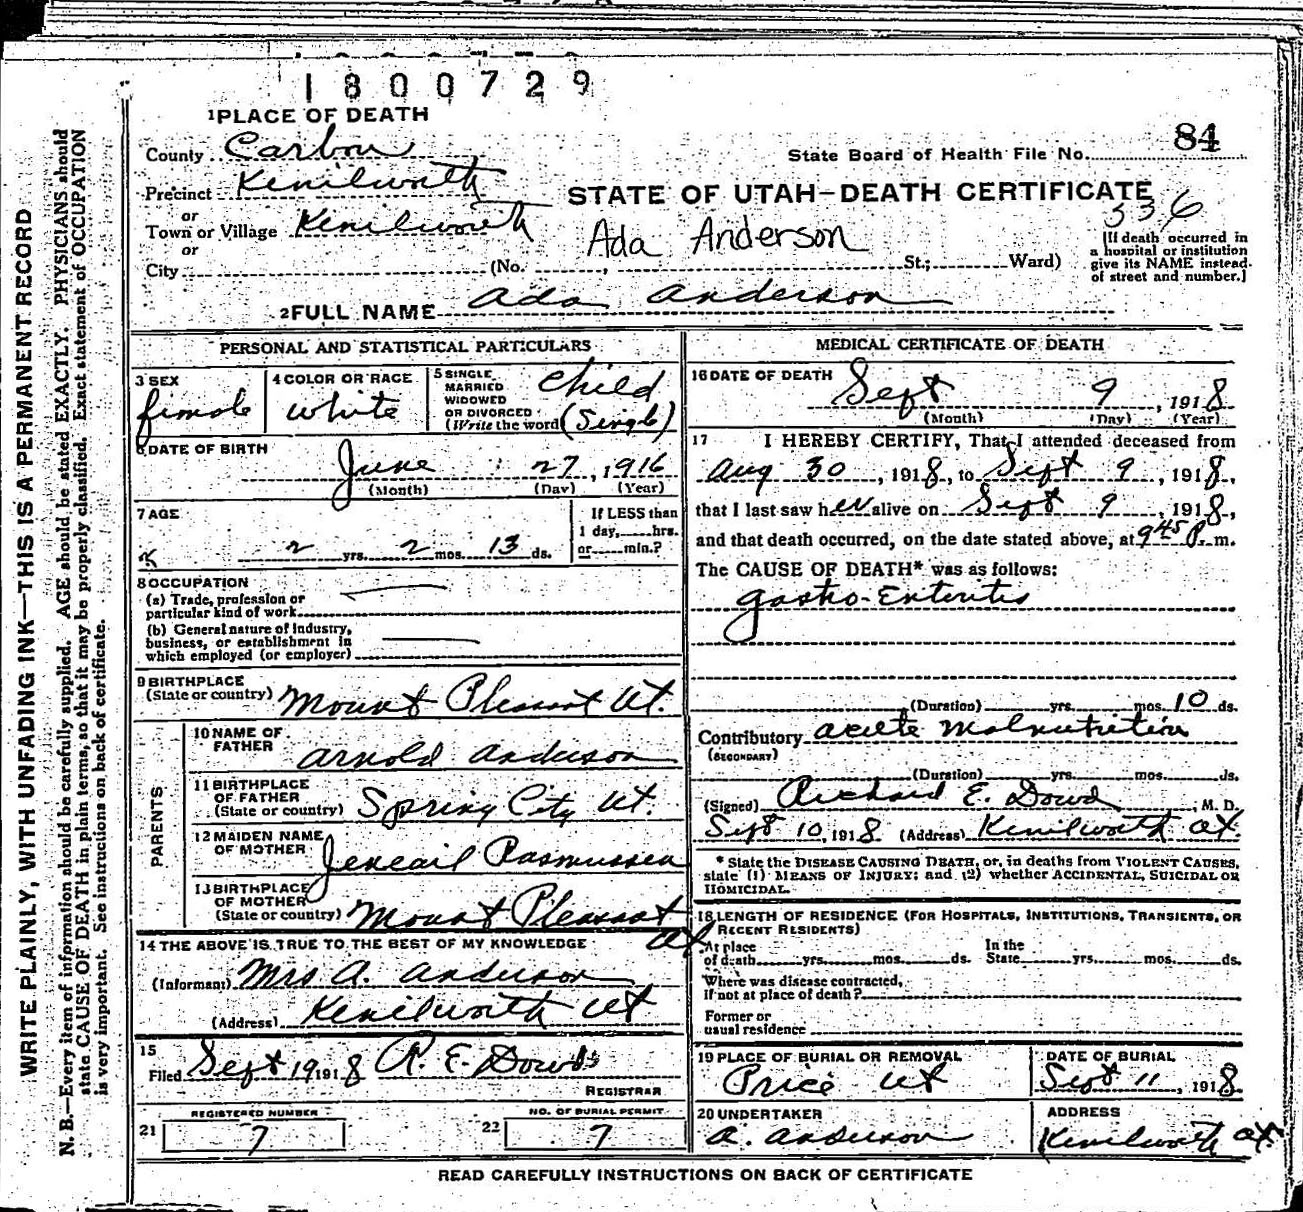 1800729
1 PLACE OF DEATH
84
County Carbon
State Board of Health File No.
Precinct Kenilworth
STATE OF UTAH—DEATH CERTIFICATE
or
Town or Village Kenilworth
Ada Anderson
336
or
City (No. , St.; Ward)
[If death occurred in
a hospital or institution
give its NAME instead
of street and number.]
2 FULL NAME Ada Anderson
PERSONAL AND STATISTICAL PARTICULARS
3 SEX
female
4 COLOR OR RACE
White
5 SINGLE
MARRIED
WIDOWED
OR DIVORCED
(Write the word)
Child
(Single)
6 DATE OF BIRTH
June 27, 1916
(Month) (Day) (Year)
7 AGE
2 yrs. 2 mos. 13 ds.
If LESS than
1 day, hrs.
or min.?
8 OCCUPATION
(a) Trade, profession or
particular kind of work
(b) General nature of Industry,
business, or establishment in
which employed (or employer)
9 BIRTHPLACE
(State or country) Mount Pleasant Ut.
PARENTS
10 NAME OF
FATHER
Arnold Anderson
11 BIRTHPLACE
OF FATHER
(State or country) Spring City Ut.
12 MAIDEN NAME
OF MOTHER
Rasmussen
13 BIRTHPLACE
OF MOTHER
(State or country) Mount Pleasant
Ut
14 THE ABOVE IS TRUE TO THE BEST OF MY KNOWLEDGE
(Informant) Mrs A. Anderson
(Address) Kenilworth Ut
15
Filed Sept 19 1918 R. E. Dowd
REGISTRAR
REGISTERED NUMBER
21 7
NO. OF BURIAL PERMIT
22 7
MEDICAL CERTIFICATE OF DEATH
16 DATE OF DEATH
Sept 9, 1918
(Month) (Day) (Year)
17 I HEREBY CERTIFY, That I attended deceased from
Aug 30, 1918, to Sept 9, 1918,
that I last saw her alive on Sept 9, 1918,
and that death occurred, on the date stated above, at 9 45 P. m.
The CAUSE OF DEATH* was as follows:
Gastro-Enteritis
(Duration) yrs. mos. 10 ds.
Contributory acute Malnutrition
(SECONDARY)
(Duration) yrs. mos. ds.
(Signed) Richard E. Dowd, M. D.
Sept 10, 1918 (Address) Kenilworth Ut.
* State the DISEASE CAUSING DEATH, or, in deaths from VIOLENT CAUSES,
state (1) MEANS OF INJURY; and (2) whether ACCIDENTAL, SUICIDAL OR
HOMICIDAL.
18 LENGTH OF RESIDENCE (FOR HOSPITALS, INSTITUTIONS, TRANSIENTS, OR
RECENT RESIDENTS)
At place
of death yrs. mos. ds.
In the
State yrs. mos. ds.
Where was disease contracted,
If not at place of death?
Former or
usual residence
19 PLACE OF BURIAL OR REMOVAL
Price Ut
DATE OF BURIAL
Sept 11, 1918
20 UNDERTAKER
A. Anderson
ADDRESS
Kenilworth Ut.
READ CAREFULLY INSTRUCTIONS ON BACK OF CERTIFICATE
WRITE PLAINLY, WITH UNFADING INK—THIS IS A PERMANENT RECORD
N. B.—Every item of information should be carefully supplied. AGE should be stated EXACTLY. PHYSICIANS should
state CAUSE OF DEATH in plain terms, so that it may be properly classified. Exact statement of OCCUPATION
is very important. See instructions on back of certificate.